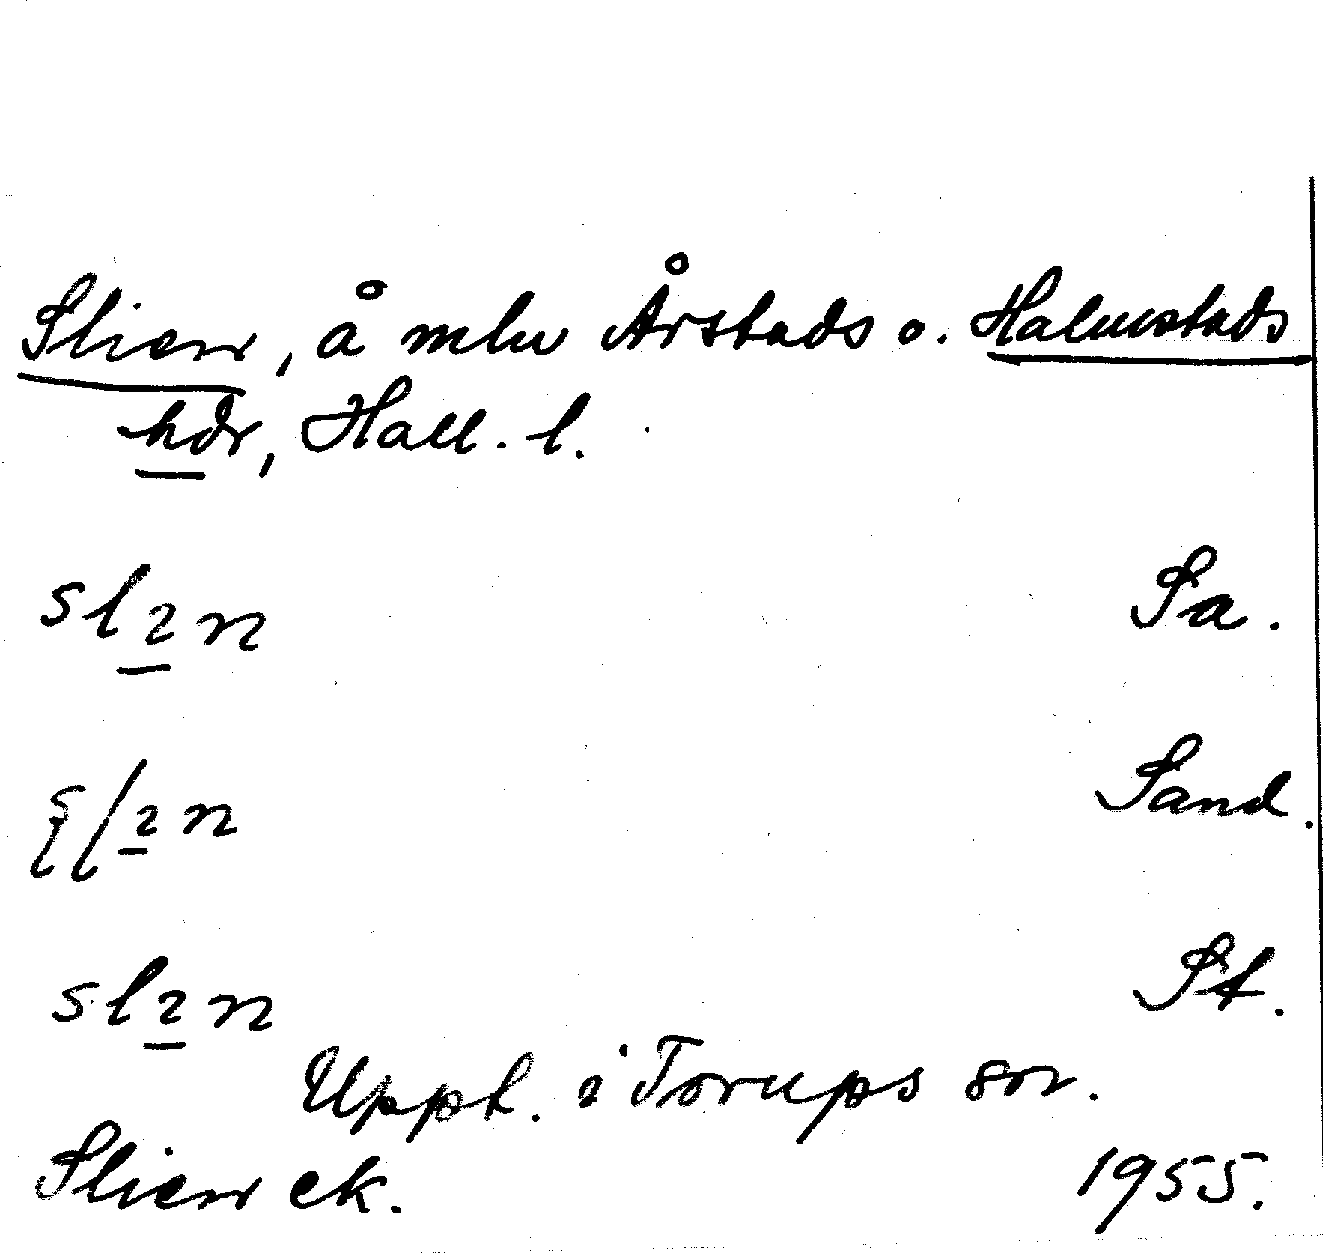 Slien, å mln Årstads o. Halmstads
hdr, Hall. l.
slɩn Sa.
Sand.
slɩn St.
Uppt. i Torups sn.
Slien ek. 1955.